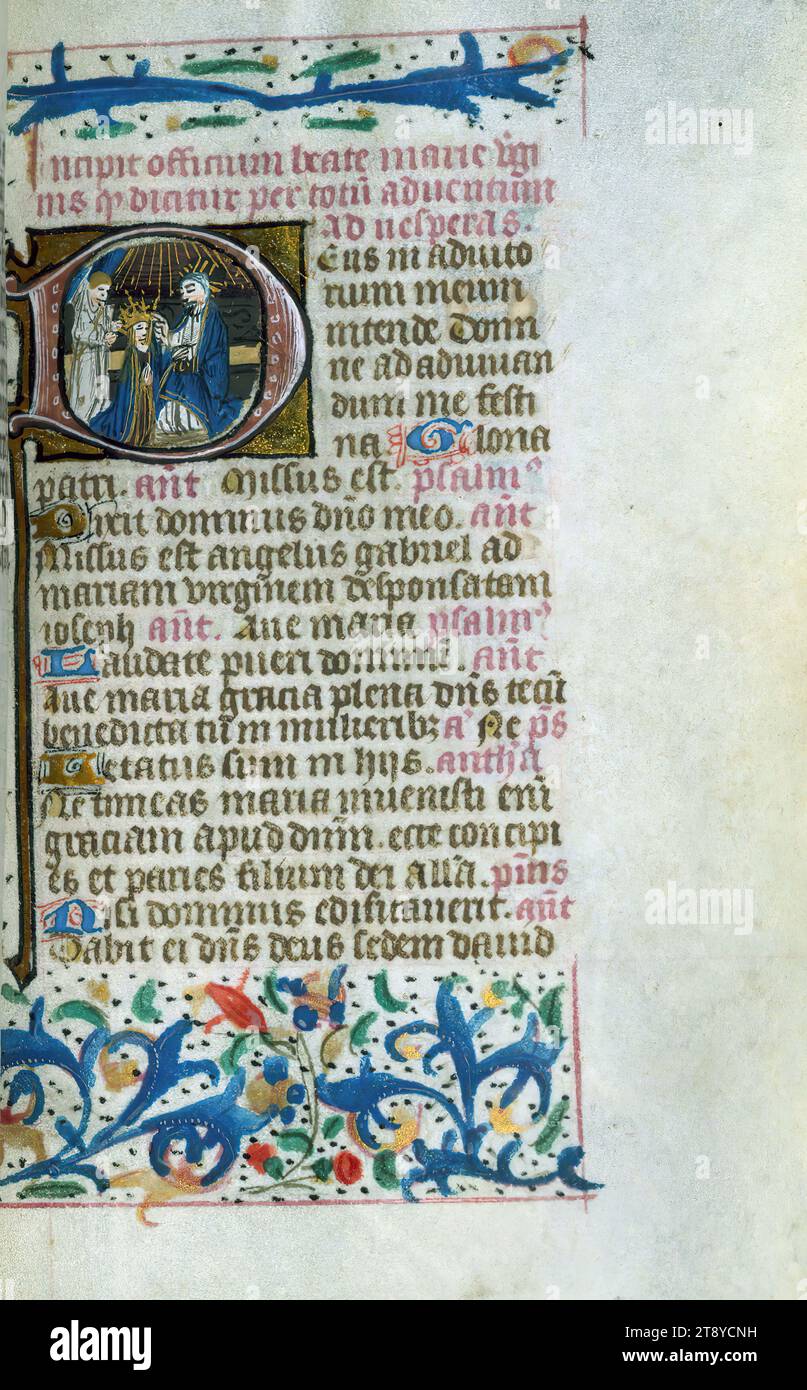 Incipit officium beate marie v̄gi
nis q̄ dicitur per totū adventum
ad vesperas.
Deus in adiuto
rium meum
intende Domi
ne ad adiuuan
dum me festi
na Gloria
patri. an̄t Missus est. psalmꝰ
Dixit dominus dn̄o meo. an̄t
Missus est angelus gabriel ad
mariam virginem desponsatam
ioseph an̄t. Aue maria psalmꝰ
Laudate pueri dominū. an̄t
Aue maria gracia plena dn̄s tecū
benedicta tu in mulieribꝫ a᷑ Ne p̄s
Letatus sum in hijs. anthᷓa
Ne timeas maria inuenisti enī
graciam apud dūm. ecce concipi
es et paries filium dei all̄a. pm̄s
Nisi dominus edificauerit. an̄t
Dabit ei dn̄s deus sedem dauid
alamy
alamy
alamy
alamy
Image ID: 2T8YCNH
www.alamy.com